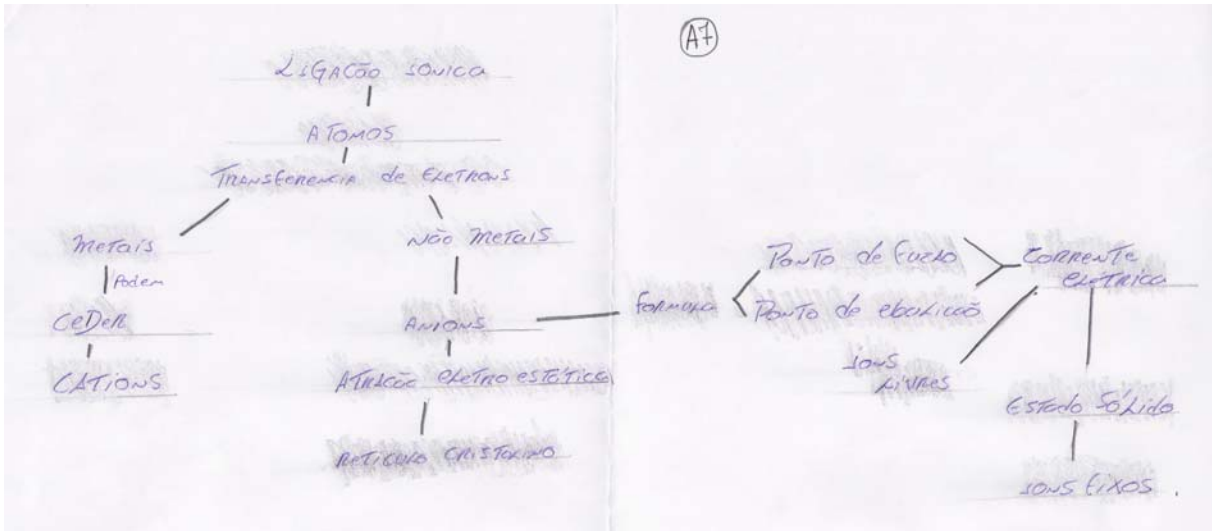 A7
Ligação iônica
Atomos
Transferencia de Eletrons
Metais
Podem
Ceder
Cations
Não Metais
Anions
Atração eletro estática
Reticulo cristalino
Formula
Ponto de fuzão
Ponto de ebulicão
Corrente
eletrica
ions
Livres
Estado Sólido
ions fixos.